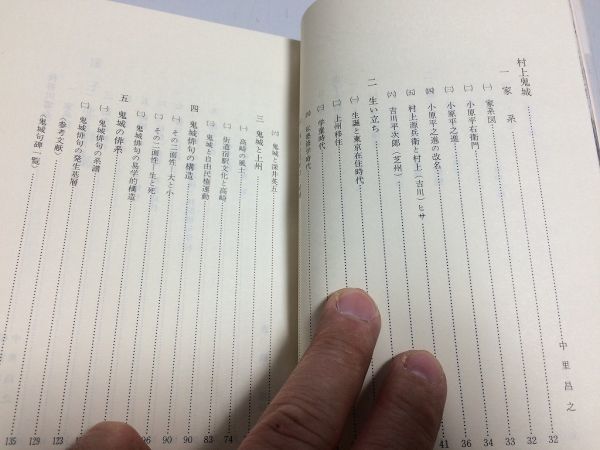 村上鬼城 32
中里昌之
一 家系 32
㈠ 家系図 33
㈡ 小原平右衛門 34
㈢ 小原平之進 36
㈣ 小原平之進の改名 41
㈤ 村上源兵衛と村上(吉川)ヒサ
㈥ 吉川平次郎(芝州)
二 生い立ち
㈠ 生誕と東京在住時代
㈡ 上州移住
㈢ 学童時代
㈥ 鬼城と深井英五
三 鬼城と上州 74
㈠ 高崎の風土
㈡ 街道宿駅文化と高崎
㈢ 鬼城と自由民権運動 83
四 鬼城俳句の構造 90
㈠ その二面性・大と小 90
㈡ その二面性・生と死 96
㈢ 鬼城俳句の易学的構造
五 鬼城の俳系
㈠ 鬼城俳句の系譜
㈡ 鬼城俳句の発生基層 123
〈参考文献〉 129
〈鬼城句碑一覧〉 135